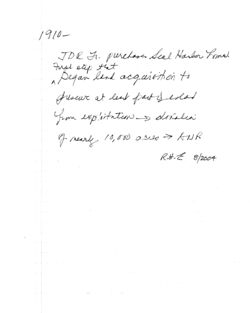 1910-
JDR Jr. purchases Seal Harbor
First step that
^ Began land acquisition to
preserve at least part of island
from exploitation → donation
of nearly 10,000 acres → ANP
R.H.E 8/2004